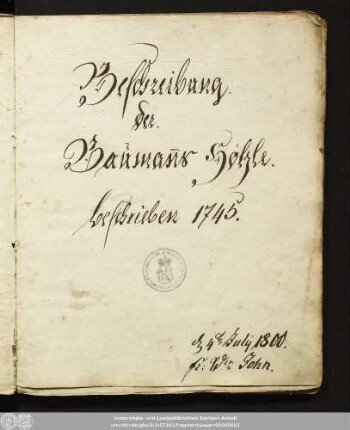 Beschreibung.
der.
Baumañs Höhle.
beschrieben 1745.
d 4t July 1800.
John.
Universitäts- und Landesbibliothek Sachsen-Anhalt